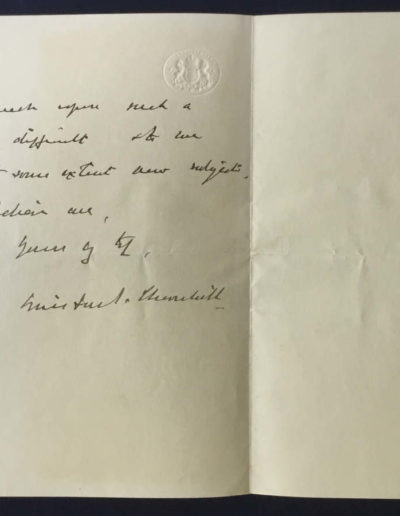 upon such a
difficult & to me
some extent new subject.
elieve me,
Yours
Winston S. Churchill